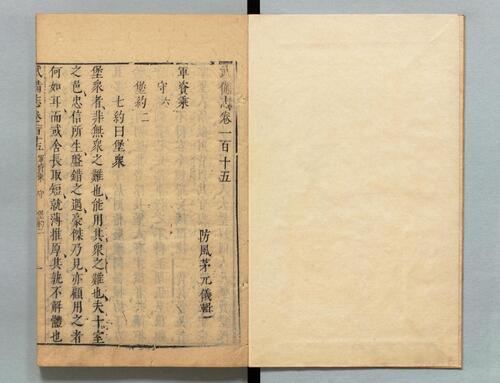 武備志卷一百十五
防風茅元儀輯
軍資乘
守六
堡約二
七約曰堡衆
堡衆者非無衆之難也能用其衆之難也夫十室
之邑忠信所生盤錯之遇豪傑乃見亦顧用之者
何如耳而或舍長取短就薄推厚其孰不解體也
武備志卷一百十五 軍資乘 守 堡約二 一